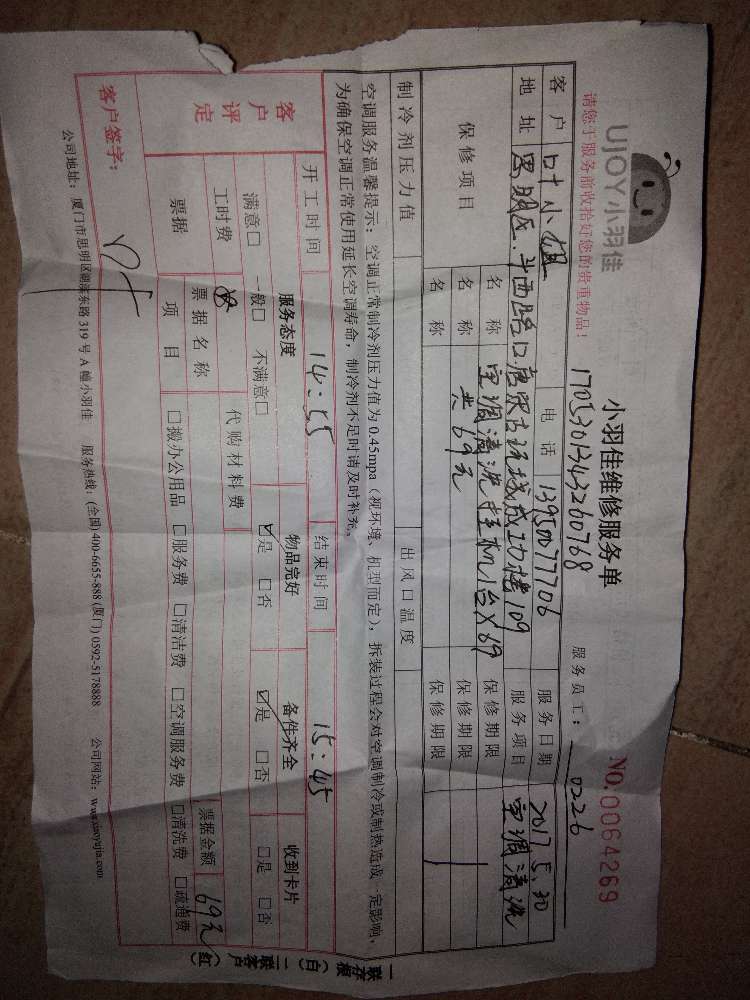 UJOY小羽佳
小羽佳维修服务单
NO.0064269
请您于服务前收拾好您的贵重物品!
1705301343260768
服务员工: 0226
客户 叶小姐 电话 13950077706 服务日期 2017.5.30
地址 思明区 斗西路口 成功楼109 服务项目 空调清洗
保修项目 名称 空调清洗挂机1台X69 保修期限
名称 共69元 保修期限
名称 保修期限
制冷剂压力值 出风口温度
空调服务温馨提示: 空调正常制冷剂压力值为0.45mpa(视环境、机型而定), 拆装过程会对空调制冷或制热造成一定影响,
为确保空调正常使用延长空调寿命, 制冷剂不足时请及时补充。
开工时间 14:55 结束时间 15:45
客户评定 服务态度 物品完好 备件齐全 收到卡片
满意□ 一般□ 不满意□ ☑是 □否 ☑是 □否 □是 □否
工时费 代购材料费 票据金额 69元
票据 票据名称
项目 □搬办公用品 □服务费 □清洁费 □空调服务费 □清洗费 □疏通费
客户签字:
公司地址: 厦门市思明区湖滨东路319号A幢小羽佳 服务热线: (全国) 400-6655-888 (厦门) 0592-5178888 公司网站: www.xiaoyujia.com
一联存根(白) 二联客户(红)